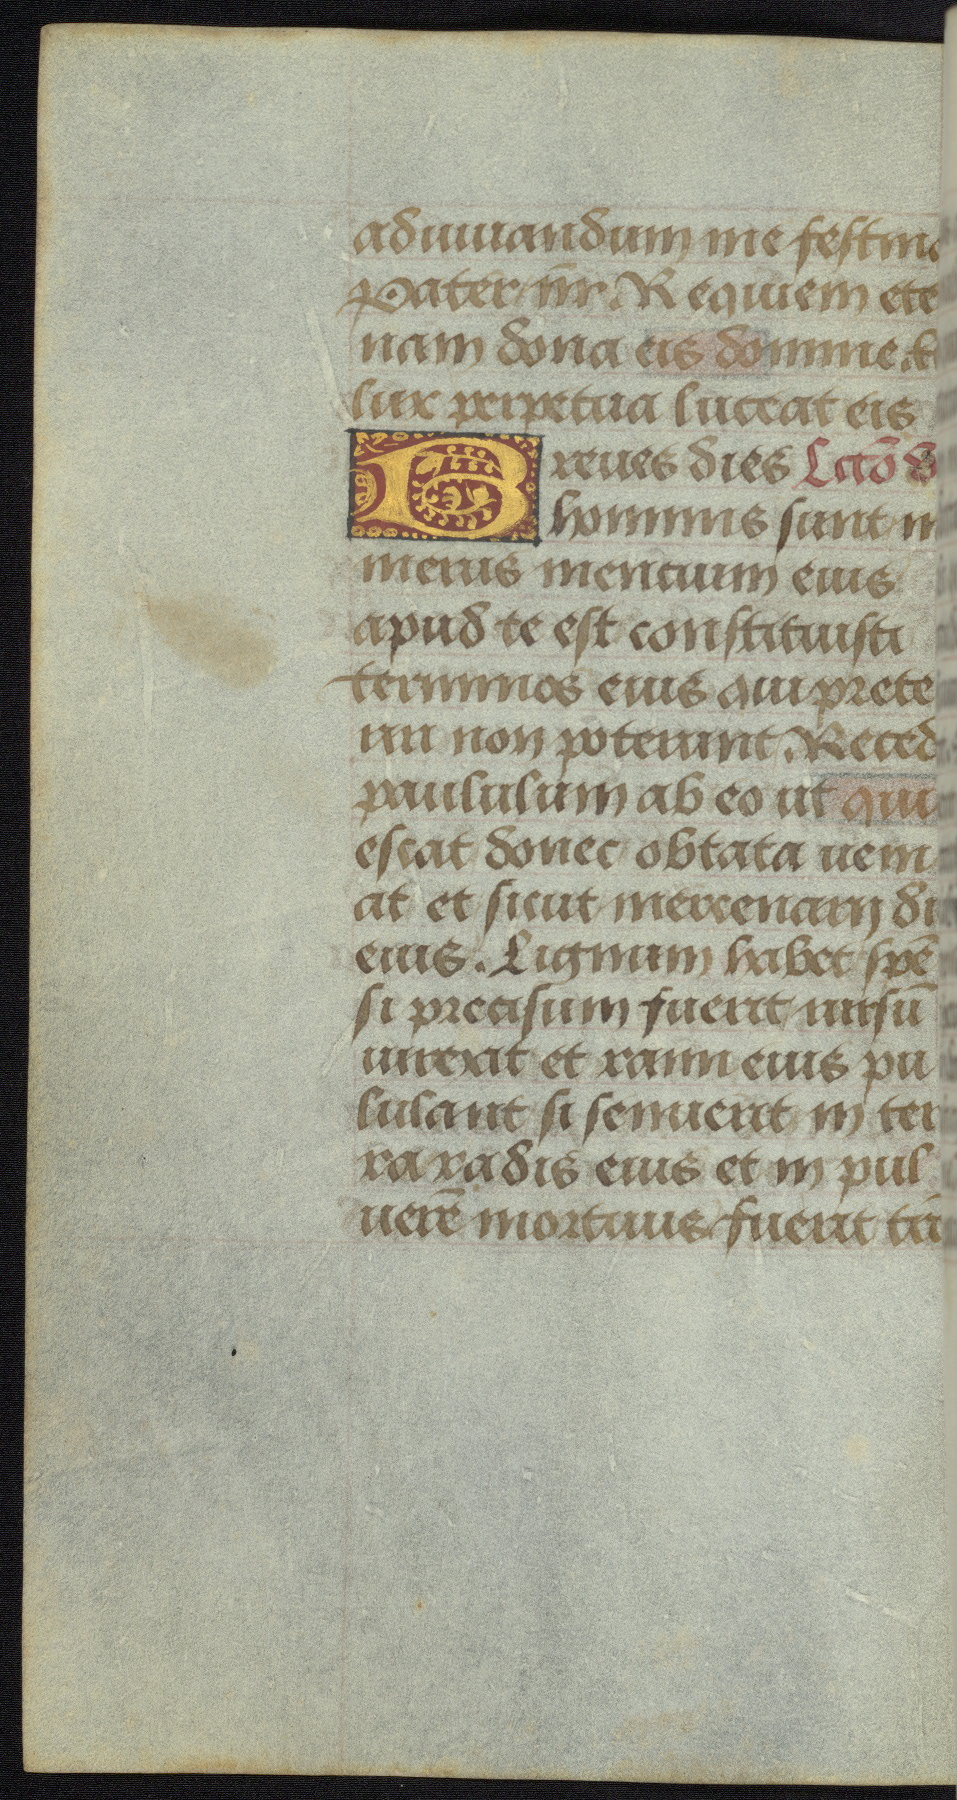 adiuuandum me festina
Pater nr̄. Requiem ete
nam dona eis domine. &
lux perpetua luceat eis
Breues dies Lctō
hominis sunt nu
merus mencium eius
apud te est constituisti
terminos eius qui prete
riri non poterunt. Reced
paululum ab eo ut qui
escat donec obtata ueni
at et sicut mercenarij di
eius. Lignum habet spē
si precisum fuerit rursū
uirexit et rami eius pu
lulant si senuerit in ter
ra radis eius et in pul
uerē mortuus fuerit